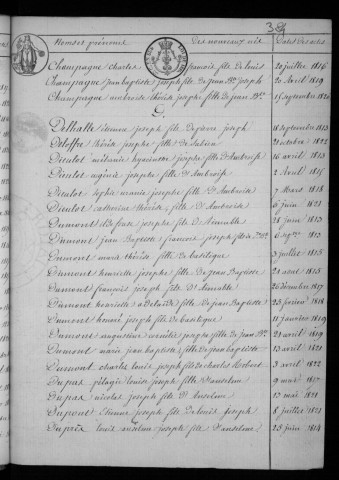 Noms et prénoms Des nouveaux nés Dates Des actes
Champagne charles françois fils de louis 20 juillet 1816
Champagne jean baptiste joseph fils de jean Bte joseph 20 avril 1819
Champagne ambroise thérèse josephe fille de jean Bte 15 septembre 1820
D.
Delhalle étienne joseph fils de pierre joseph 18 septembre 1813
Deloffre thérèse joseph fille de Sabin 21 octobre 1822
Dieulot mélanie hyacinthe josephe fille d'Ambroise 16 avril 1813
Dieulot joseph fils d'Ambroise 2 avril 1815
Dieulot sophie marie josephe fille d'Ambroise 7 mars 1818
Dieulot catherine thérèse fille d'Ambroise 6 juin 1821
Dumont joseph fils de Aimable 28 juin 1813
Dumont jean Baptiste françois joseph fils de 1813
Dumont marie thérèse fille de basilique 3 juillet 1815
Dumont henriette josephe fille de jean Baptiste 21 aout 1815
Dumont françois joseph fils d'Aimable 26 Décembre 1817
Dumont henriette adelaïde fille de jean Baptiste 25 fevrier 1818
Dumont henri joseph fils de basilique 11 janvier 1819
Dumont augustine josephe fille de jean Bte 21 avril 1819
Dumont marie jean baptiste fils de jean baptiste 13 avril 1821
Dumont charles louis joseph fils de charles Robert 3 avril 1822
Dupas pélagie louise josephe fille d'anselme 9 mai 1817
Dupas nicolas joseph fils d'Anselme 17 mai 1821
Dupont Etienne joseph fils de louis joseph 8 juillet 1821
Dupris louis anselme joseph fils d'anselme 25 juin 1814